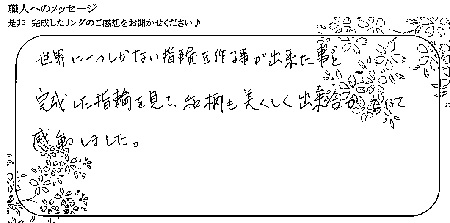 職人へのメッセージ
是非 完成したリングのご感想をお聞かせください♪
世界に一つしかない指輪を作る事が出来た事と
完成した指輪を見て、絵柄も美しく出来
感動しました。